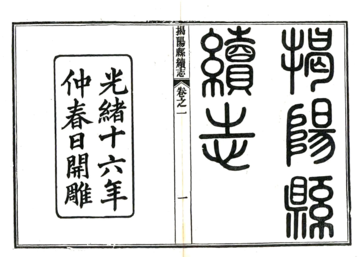 揭陽縣
續志
揭陽縣續志
卷之一
一
光緒十六年
仲春日開雕